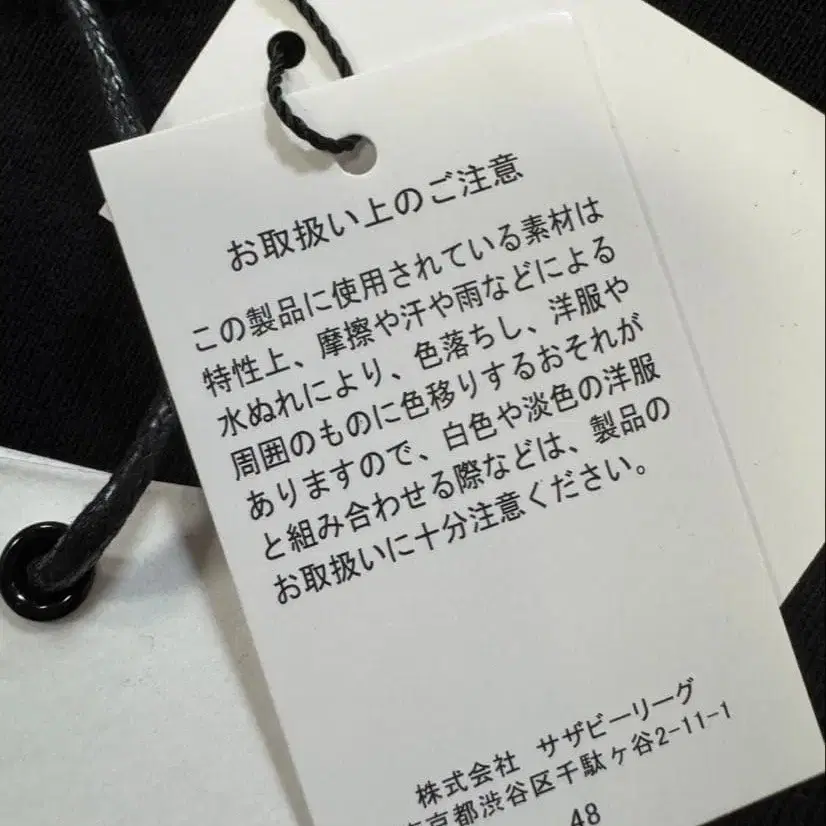 お取扱い上のご注意
この製品に使用されている素材は
特性上、摩擦や汗や雨などによる
水ぬれにより、色落ちし、洋服や
周囲のものに色移りするおそれが
ありますので、白色や淡色の洋服
と組み合わせる際などは、製品の
お取扱いに十分注意ください。
株式会社 サザビーリーグ
京都渋谷区千駄ヶ谷2-11-1
48